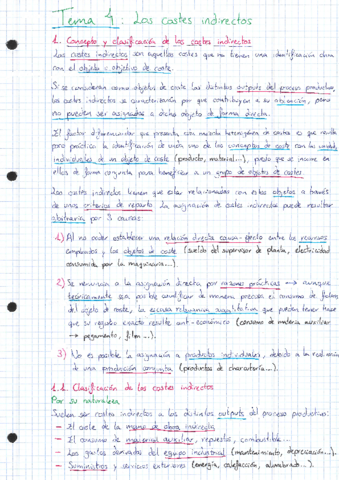 Tema 4: Los costes indirectos
1. Concepto y clasificación de los costes indirectos
Los costes indirectos son aquellos costes que no tienen una identificación clara
con el objeto u objetivo de coste.
Si se consideran como objetos de coste los distintos outputs del proceso productivo,
los costes indirectos se caracterizan por que contribuyen a su obtención, pero
no pueden ser asignados a dicho objeto de forma directa.
El factor diferenciador que presenta esta masa heterogénea de costes es que evita
para práctica la identificación de cada uno de los conceptos de coste con las unidades
individuales de un objeto de coste (producto, material...), puesto que se incurre en
ellos de forma conjunta para beneficiar a un grupo de objetos de costes.
Los costes indirectos tienen que estar relacionados con estos objetos a través
de unos criterios de reparto. La asignación de costes indirectos puede resultar
arbitraria por 3 causas:
1) Al no poder establecerse una relación directa causa-efecto entre los recursos
empleados y los objetos de coste (sueldo del supervisor de planta, electricidad
consumida por la maquinaria...).
2) Se renuncia a la asignación directa por razones prácticas → aunque
teóricamente sea posible cuantificar de manera precisa el consumo de factores
del objeto de coste, la escasa relevancia cuantitativa que pueden tener hace
que su registro exacto resulte anti-económico (consumo de materia auxiliar
→ pegamento, hilo...).
3) No es posible la asignación a productos individuales, debido a la realización
de una producción conjunta (productos de charcutería...).
1.1. Clasificación de los costes indirectos
Por su naturaleza
Suelen ser costes indirectos a los distintos outputs del proceso productivo:
- El coste de la mano de obra indirecta
- El consumo de material auxiliar, repuestos, combustible...
- Los gastos derivados del equipo industrial (mantenimiento, depreciación...).
- Suministros y servicios exteriores (energía, calefacción, alumbrado...).